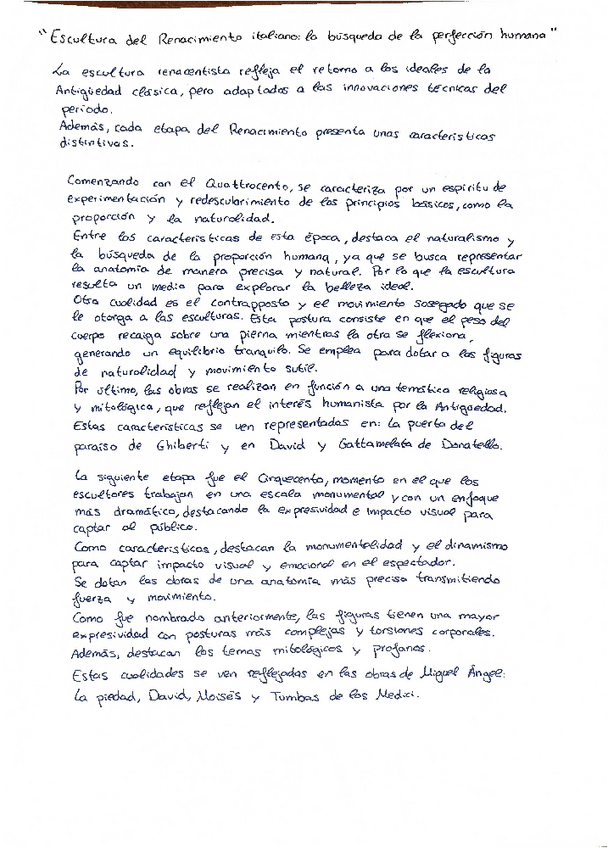 "Escultura del Renacimiento italiano: la búsqueda de la perfección humana"
La escultura renacentista refleja el retorno a los ideales de la
Antigüedad clásica, pero adaptados a las innovaciones técnicas del
periodo.
Además, cada etapa del Renacimiento presenta unas características
distintivas.
Comenzando con el Quattrocento, se caracteriza por un espíritu de
experimentación y redescubrimiento de los principios básicos, como la
proporción y la naturalidad.
Entre las características de esta época, destaca el naturalismo y
la búsqueda de la proporción humana, ya que se busca representar
la anatomía de manera precisa y natural. Por lo que la escultura
resulta un medio para explorar la belleza ideal.
Otra cualidad es el contrapposto y el movimiento sosegado que se
le otorga a las esculturas. Esta postura consiste en que el peso del
cuerpo recaiga sobre una pierna mientras la otra se flexiona,
generando un equilibrio tranquilo. Se emplea para dotar a las figuras
de naturalidad y movimiento sutil.
Por último, las obras se realizan en función a una temática religiosa
y mitológica, que reflejan el interés humanista por la Antigüedad.
Estas características se ven representadas en: la puerta del
paraíso de Ghiberti y en David y Gattamelata de Donatello.
La siguiente etapa fue el Cinquecento, momento en el que los
escultores trabajan en una escala monumental y con un enfoque
más dramático, destacando la expresividad e impacto visual para
captar al público.
Como características, destacan la monumentalidad y el dinamismo
para captar impacto visual y emocional en el espectador.
Se dotan las obras de una anatomía más precisa transmitiendo
fuerza y movimiento.
Como fue nombrado anteriormente, las figuras tienen una mayor
expresividad con posturas más complejas y torsiones corporales.
Además, destacan los temas mitológicos y profanos.
Estas cualidades se ven reflejadas en las obras de Miguel Ángel:
La piedad, David, Moisés y Tumbas de los Medici.